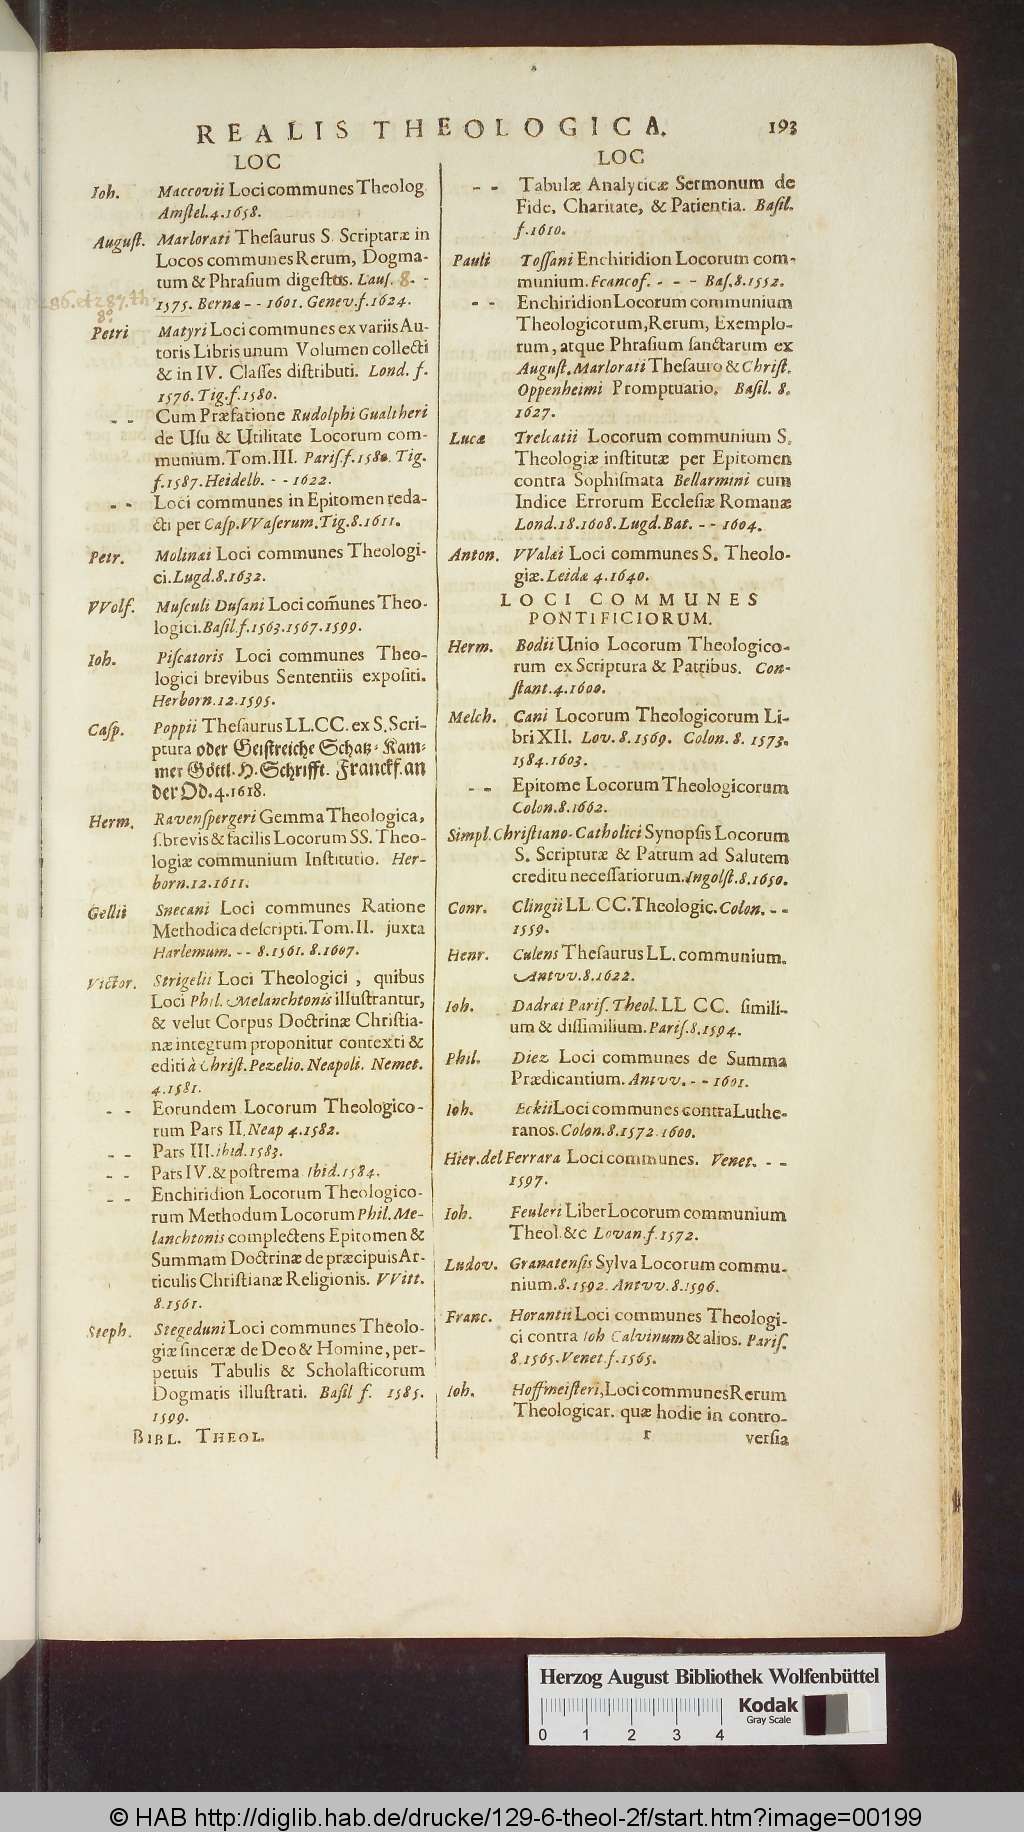 REALIS THEOLOGICA. 193
LOC
Ioh. Maccovii Loci communes Theolog
Amſtel.4.1658.
Auguſt. Marlorati Theſaurus S. Scripturæ in
Locos communes Rerum, Dogma-
tum & Phraſium digeſtus. Lauſ. 8. -
1575. Bernæ - - 1601. Genev.f.1624.
Petri Matyri Loci communes ex variis Au-
toris Libris unum Volumen collecti
& in IV. Claſſes diſtributi. Lond. f.
1576. Tig.f.1580.
- - Cum Præfatione Rudolphi Gualtheri
de Uſu & Utilitate Locorum com-
munium. Tom. III. Pariſ.f.1580. Tig.
f.1587. Heidelb. - - 1622.
- - Loci communes in Epitomen reda-
cti per Caſp. VVaſerum. Tig.8.1611.
Petr. Molinæi Loci communes Theologi-
ci. Lugd.8.1632.
VVolf. Muſculi Duſani Loci com̃unes Theo-
logici. Baſil.f.1563.1567.1599.
Ioh. Piſcatoris Loci communes Theo-
logici brevibus Sententiis expoſiti.
Herborn.12.1595.
Caſp. Poppii Theſaurus LL.CC. ex S. Scri-
ptura oder Geiſtreiche Schatz-Kam-
mer Göttl. H. Schrifft. Franckf. an
der Od.4.1618.
Herm. Ravenſpergeri Gemma Theologica,
ſ. brevis & facilis Locorum SS. Theo-
logiæ communium Inſtitutio. Her-
born.12.1611.
Gellii Snecani Loci communes Ratione
Methodica deſcripti. Tom. II. juxta
Harlemum. - - 8.1561. 8.1607.
Victor. Strigelii Loci Theologici, quibus
Loci Phil. Melanchtonis illuſtrantur,
& velut Corpus Doctrinæ Chriſtia-
næ integrum proponitur contexti &
editi à Chriſt. Pezelio. Neapoli. Nemet.
4.1581.
- - Eorundem Locorum Theologico-
rum Pars II. Neap 4.1582.
- - Pars III. ibid.1583.
- - Pars IV. & poſtrema Ibid.1584.
- - Enchiridion Locorum Theologico-
rum Methodum Locorum Phil. Me-
lanchtonis complectens Epitomen &
Summam Doctrinæ de præcipuis Ar-
ticulis Chriſtianæ Religionis. VVitt.
8.1561.
Steph. Stegeduni Loci communes Theolo-
giæ ſinceræ de Deo & Homine, per-
petuis Tabulis & Scholaſticorum
Dogmatis illuſtrati. Baſil f. 1585.
1599.
BIBL. THEOL.
LOC
- - Tabulæ Analyticæ Sermonum de
Fide, Charitate, & Patientia. Baſil.
f.1610.
Pauli Toſſani Enchiridion Locorum com-
munium. Francof. - - - Baſ.8.1552.
- - Enchiridion Locorum communium
Theologicorum, Rerum, Exemplo-
rum, atque Phraſium ſanctarum ex
Auguſt. Marlorati Theſauro & Chriſt.
Oppenheimi Promptuatio. Baſil. 8.
1627.
Lucæ Trelcatii Locorum communium S.
Theologiæ inſtitutæ per Epitomen
contra Sophiſmata Bellarmini cum
Indice Errorum Eccleſiæ Romanæ
Lond.18.1608. Lugd. Bat. - - 1604.
Anton. VValæi Loci communes S. Theolo-
giæ. Leidæ 4.1640.
LOCI COMMUNES
PONTIFICIORUM.
Herm. Bodii Unio Locorum Theologico-
rum ex Scriptura & Patribus. Con-
ſtant.4.1600.
Melch. Cani Locorum Theologicorum Li-
bri XII. Lov. 8.1569. Colon. 8. 1573.
1584.1603.
- - Epitome Locorum Theologicorum
Colon.8.1662.
Simpl. Chriſtiano-Catholici Synopſis Locorum
S. Scripturæ & Patrum ad Salutem
creditu neceſſariorum. Ingolſt.8.1650.
Conr. Clingii LL CC. Theologic. Colon. - -
1559.
Henr. Culens Theſaurus LL. communium.
Antvv.8.1622.
Ioh. Dadræi Pariſ. Theol. LL CC. ſimili-
um & diſſimilium. Pariſ.8.1594.
Phil. Diez Loci communes de Summa
Prædicantium. Antvv. - - 1601.
Ioh. Eckii Loci communes contra Luthe-
ranos. Colon.8.1572.1600.
Hier. del Ferrara Loci communes. Venet. - -
1597.
Ioh. Feuleri Liber Locorum communium
Theol. &c Lovan.f.1572.
Ludov. Granatenſis Sylva Locorum commu-
nium.8.1592. Antvv.8.1596.
Franc. Horantii Loci communes Theologi-
ci contra Ioh Calvinum & alios. Pariſ.
8.1565. Venet.f.1565.
Ioh. Hoffmeiſteri, Loci communes Rerum
Theologicar. quæ hodie in contro-
r verſia
Herzog August Bibliothek Wolfenbüttel
Kodak
Gray Scale
0 1 2 3 4
© HAB http://diglib.hab.de/drucke/129-6-theol-2f/start.htm?image=00199